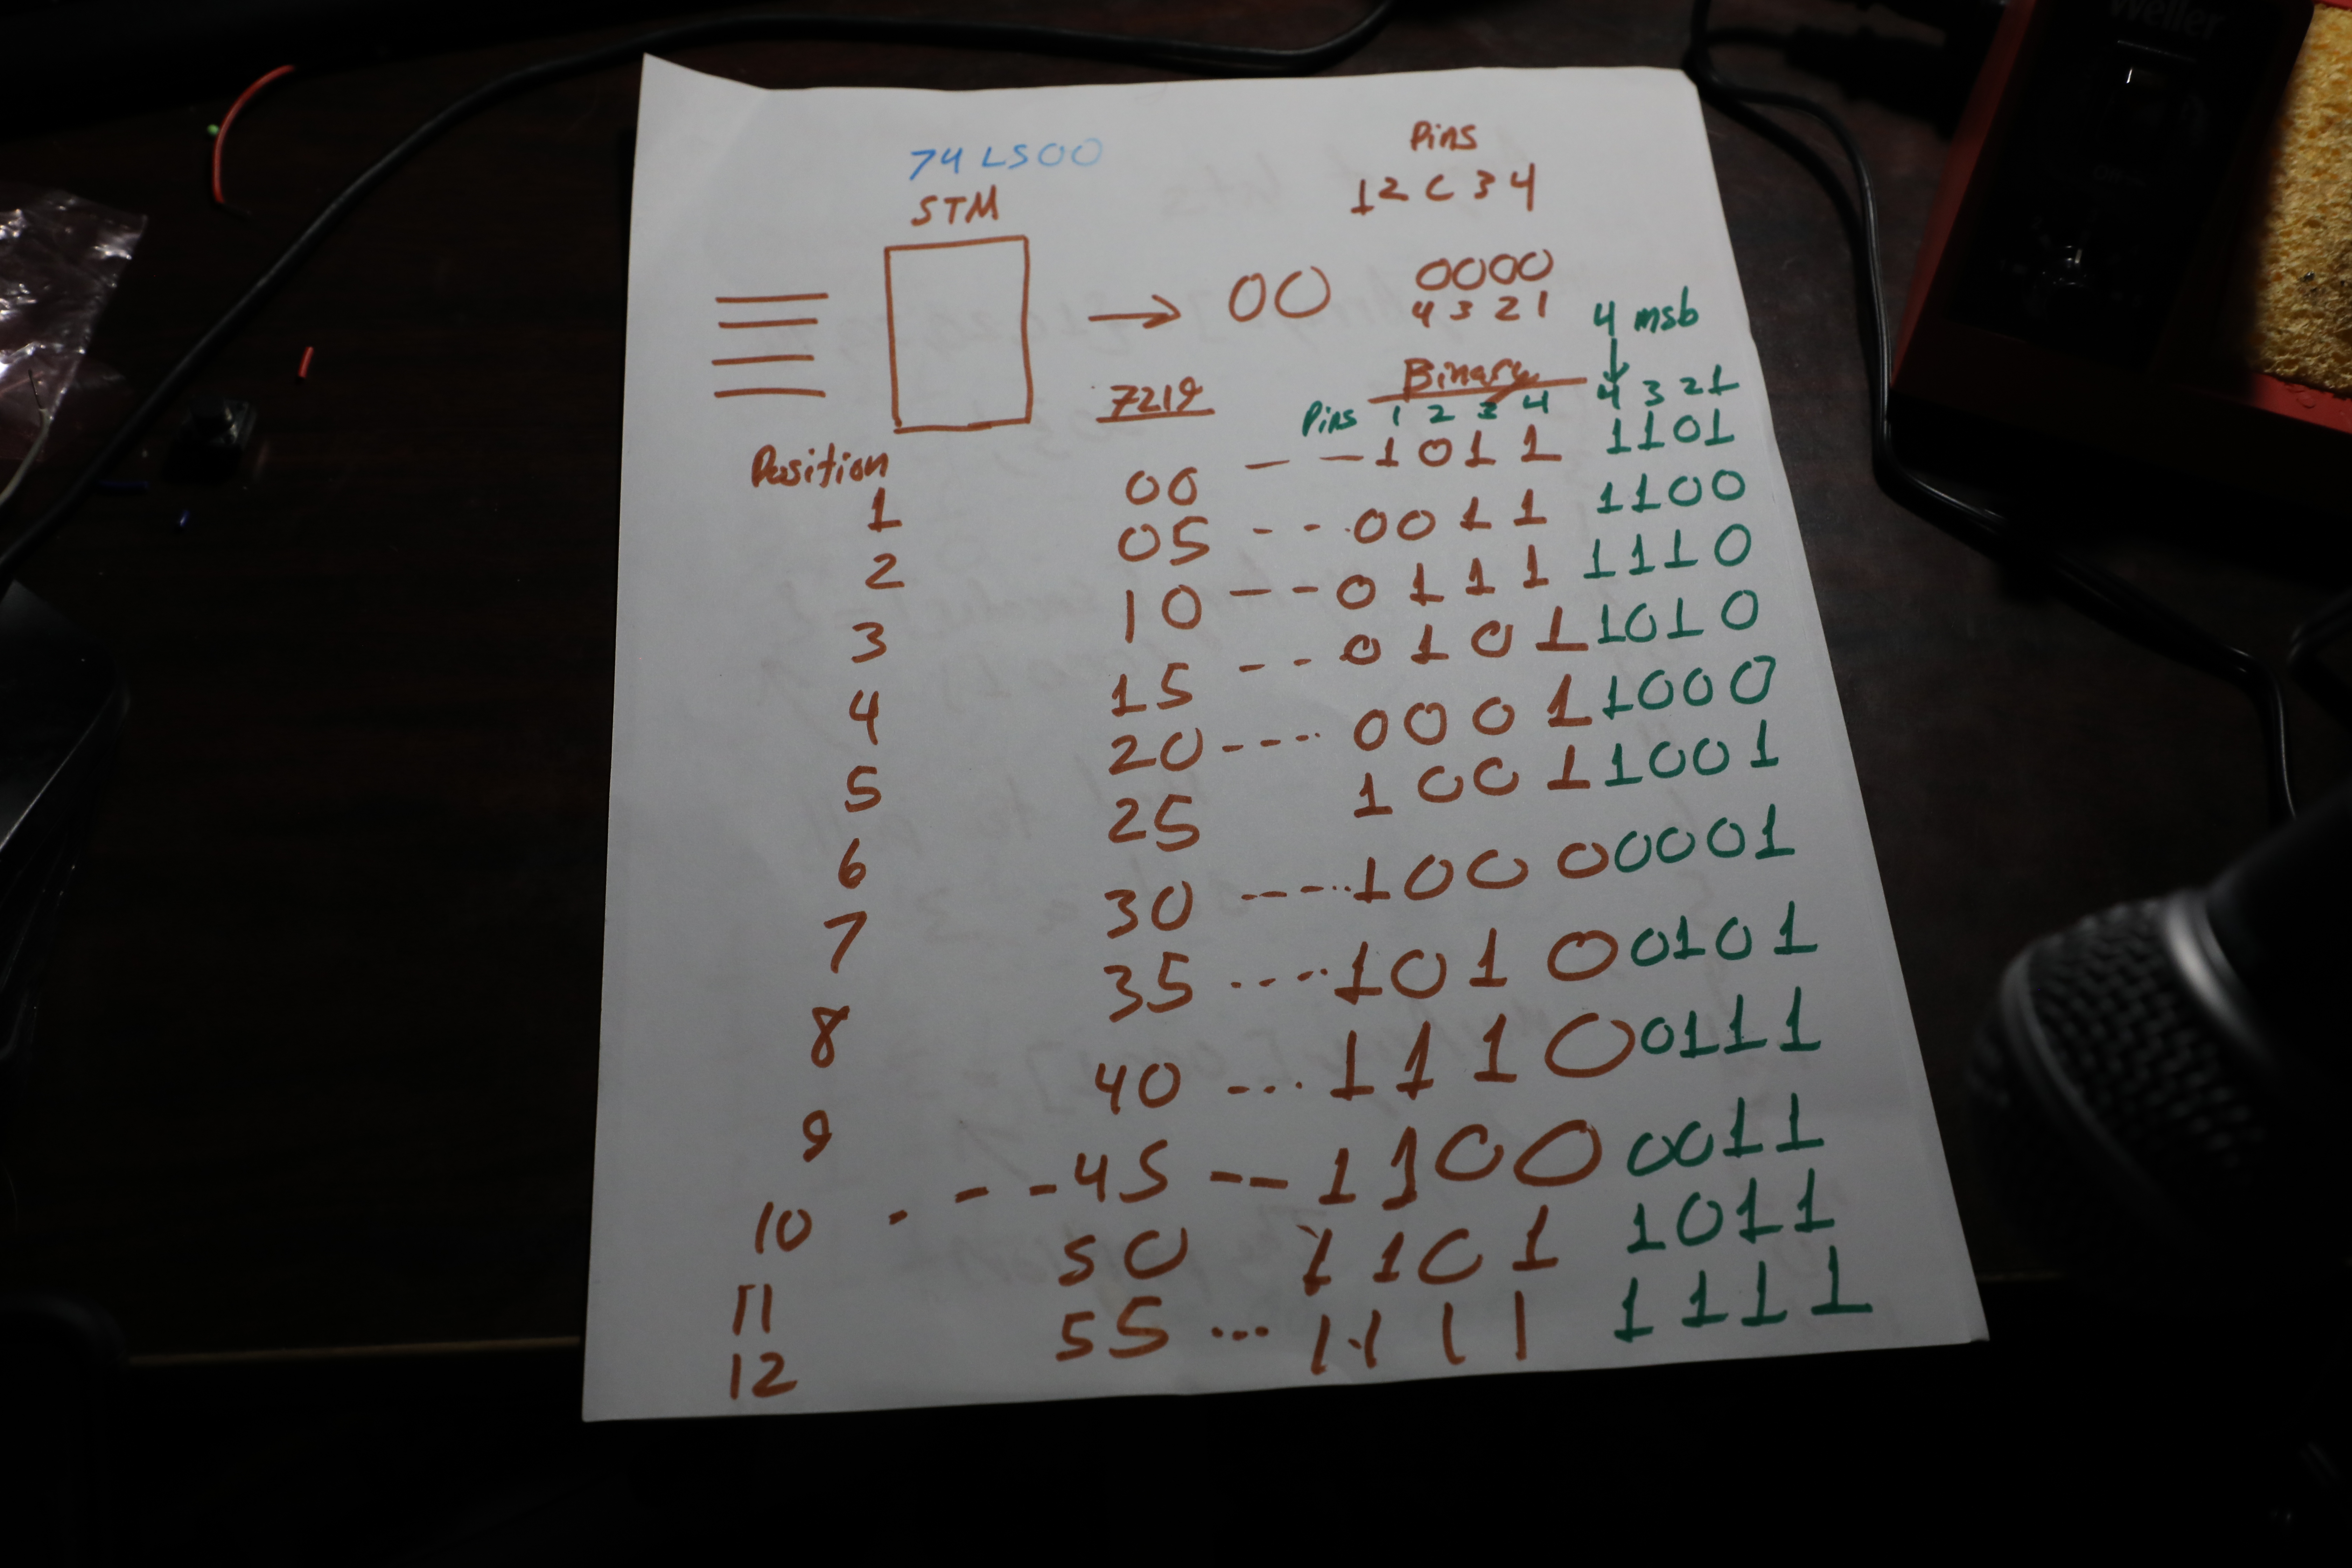 Weller
74LS00
STM
Pins
1 2 C 3 4
00
0000
4 3 2 1
4 msb
7219
Binary
Pins 1 2 3 4 4 3 2 1
Position
00 - - 1011 1101
1
05 - - - 0011 1100
2
10 - - - 0111 1110
3
15 - - - 0101 1010
4
20 - - - - 0001 1000
5
25 1001 1001
6
30 - - - - - 1000 0001
7
35 - - - - - 1010 0101
8
40 - - - - 1110 0111
9
- - - 45 - - 1100 0011
10
50 1101 1011
11
55 ... 1111 1111
12